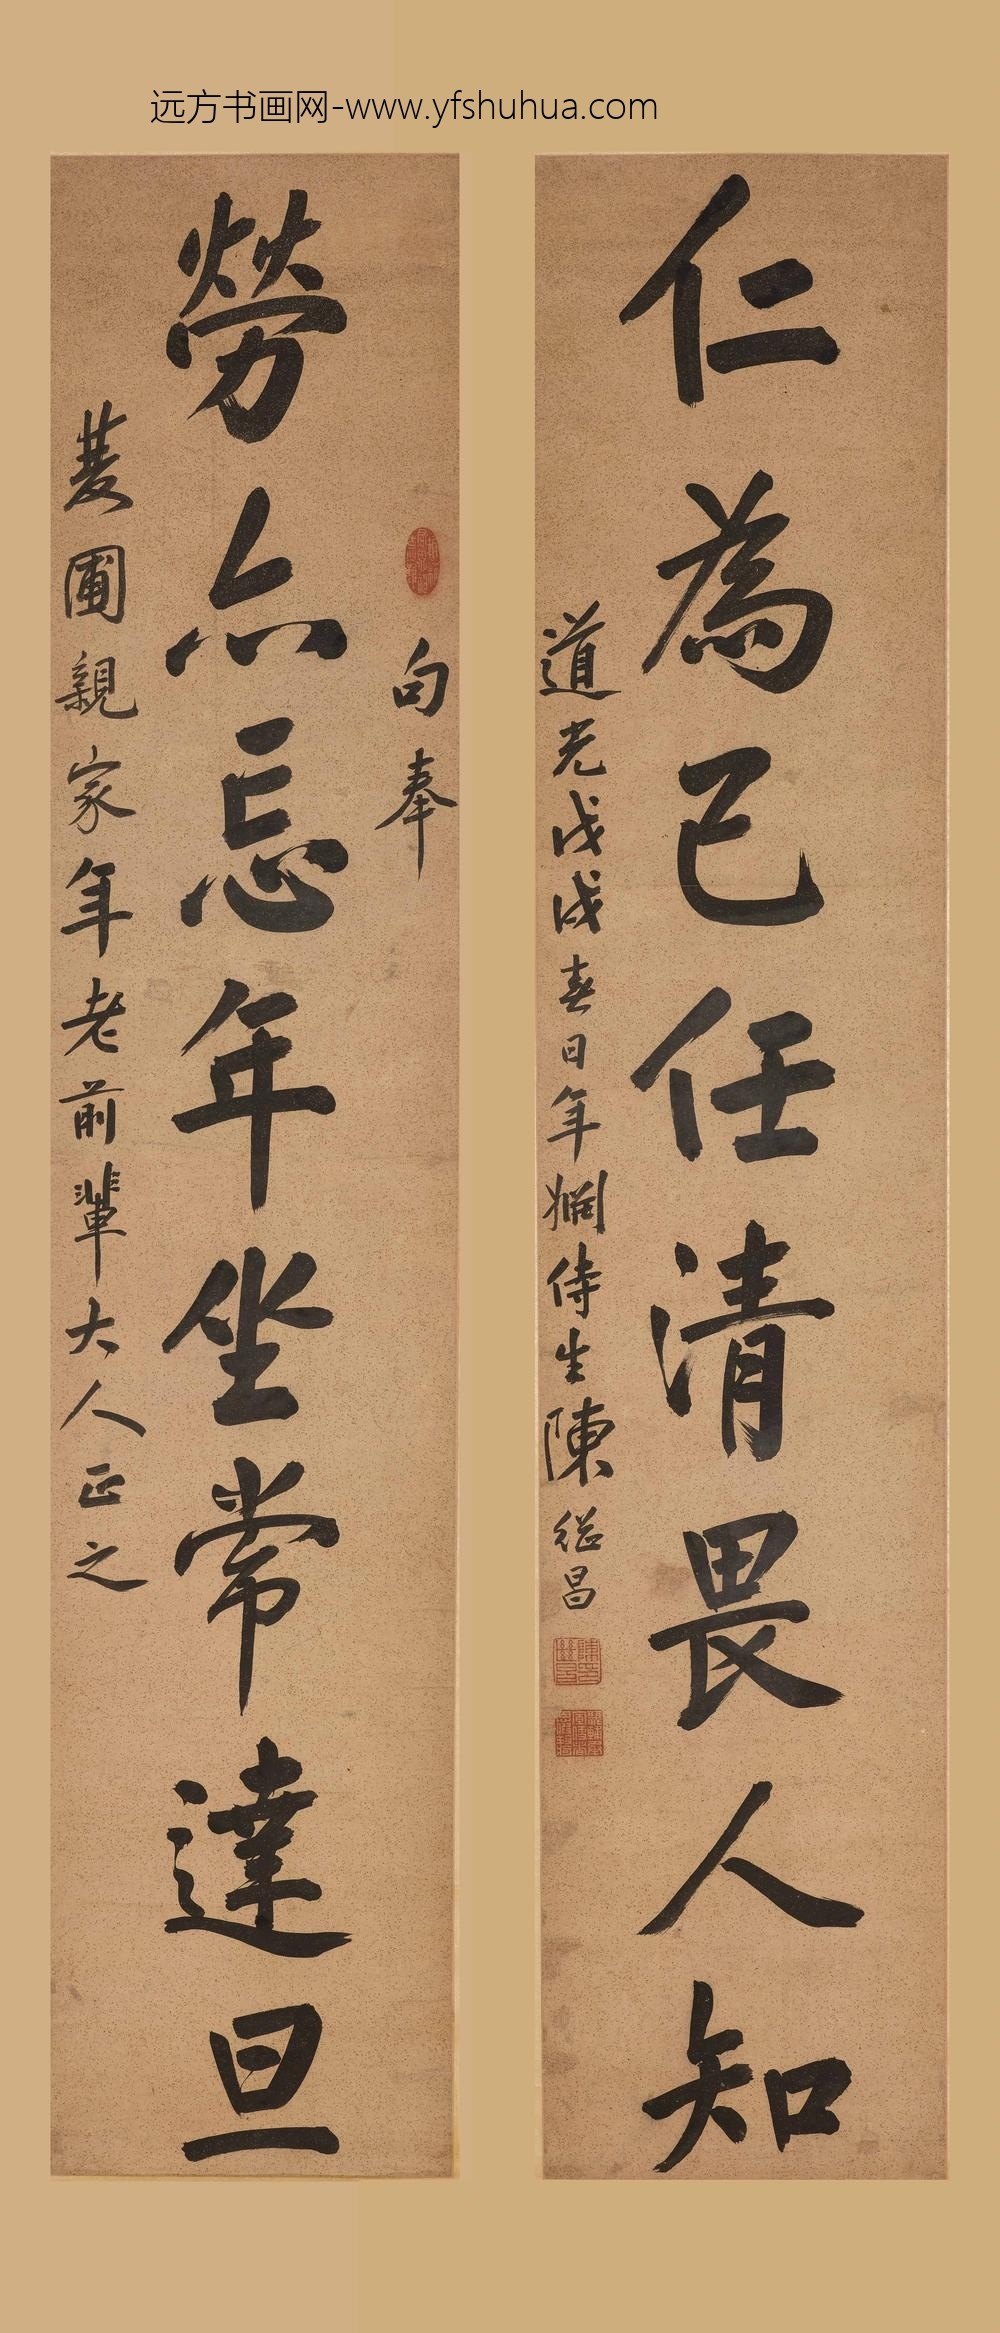 远方书画网-www.yfshuhua.com
仁為己任清畏人知
道光戊戌春日年姻侍生陳繼昌
句奉
勞亦忘年坐常達旦
圃親家年老前輩大人正之